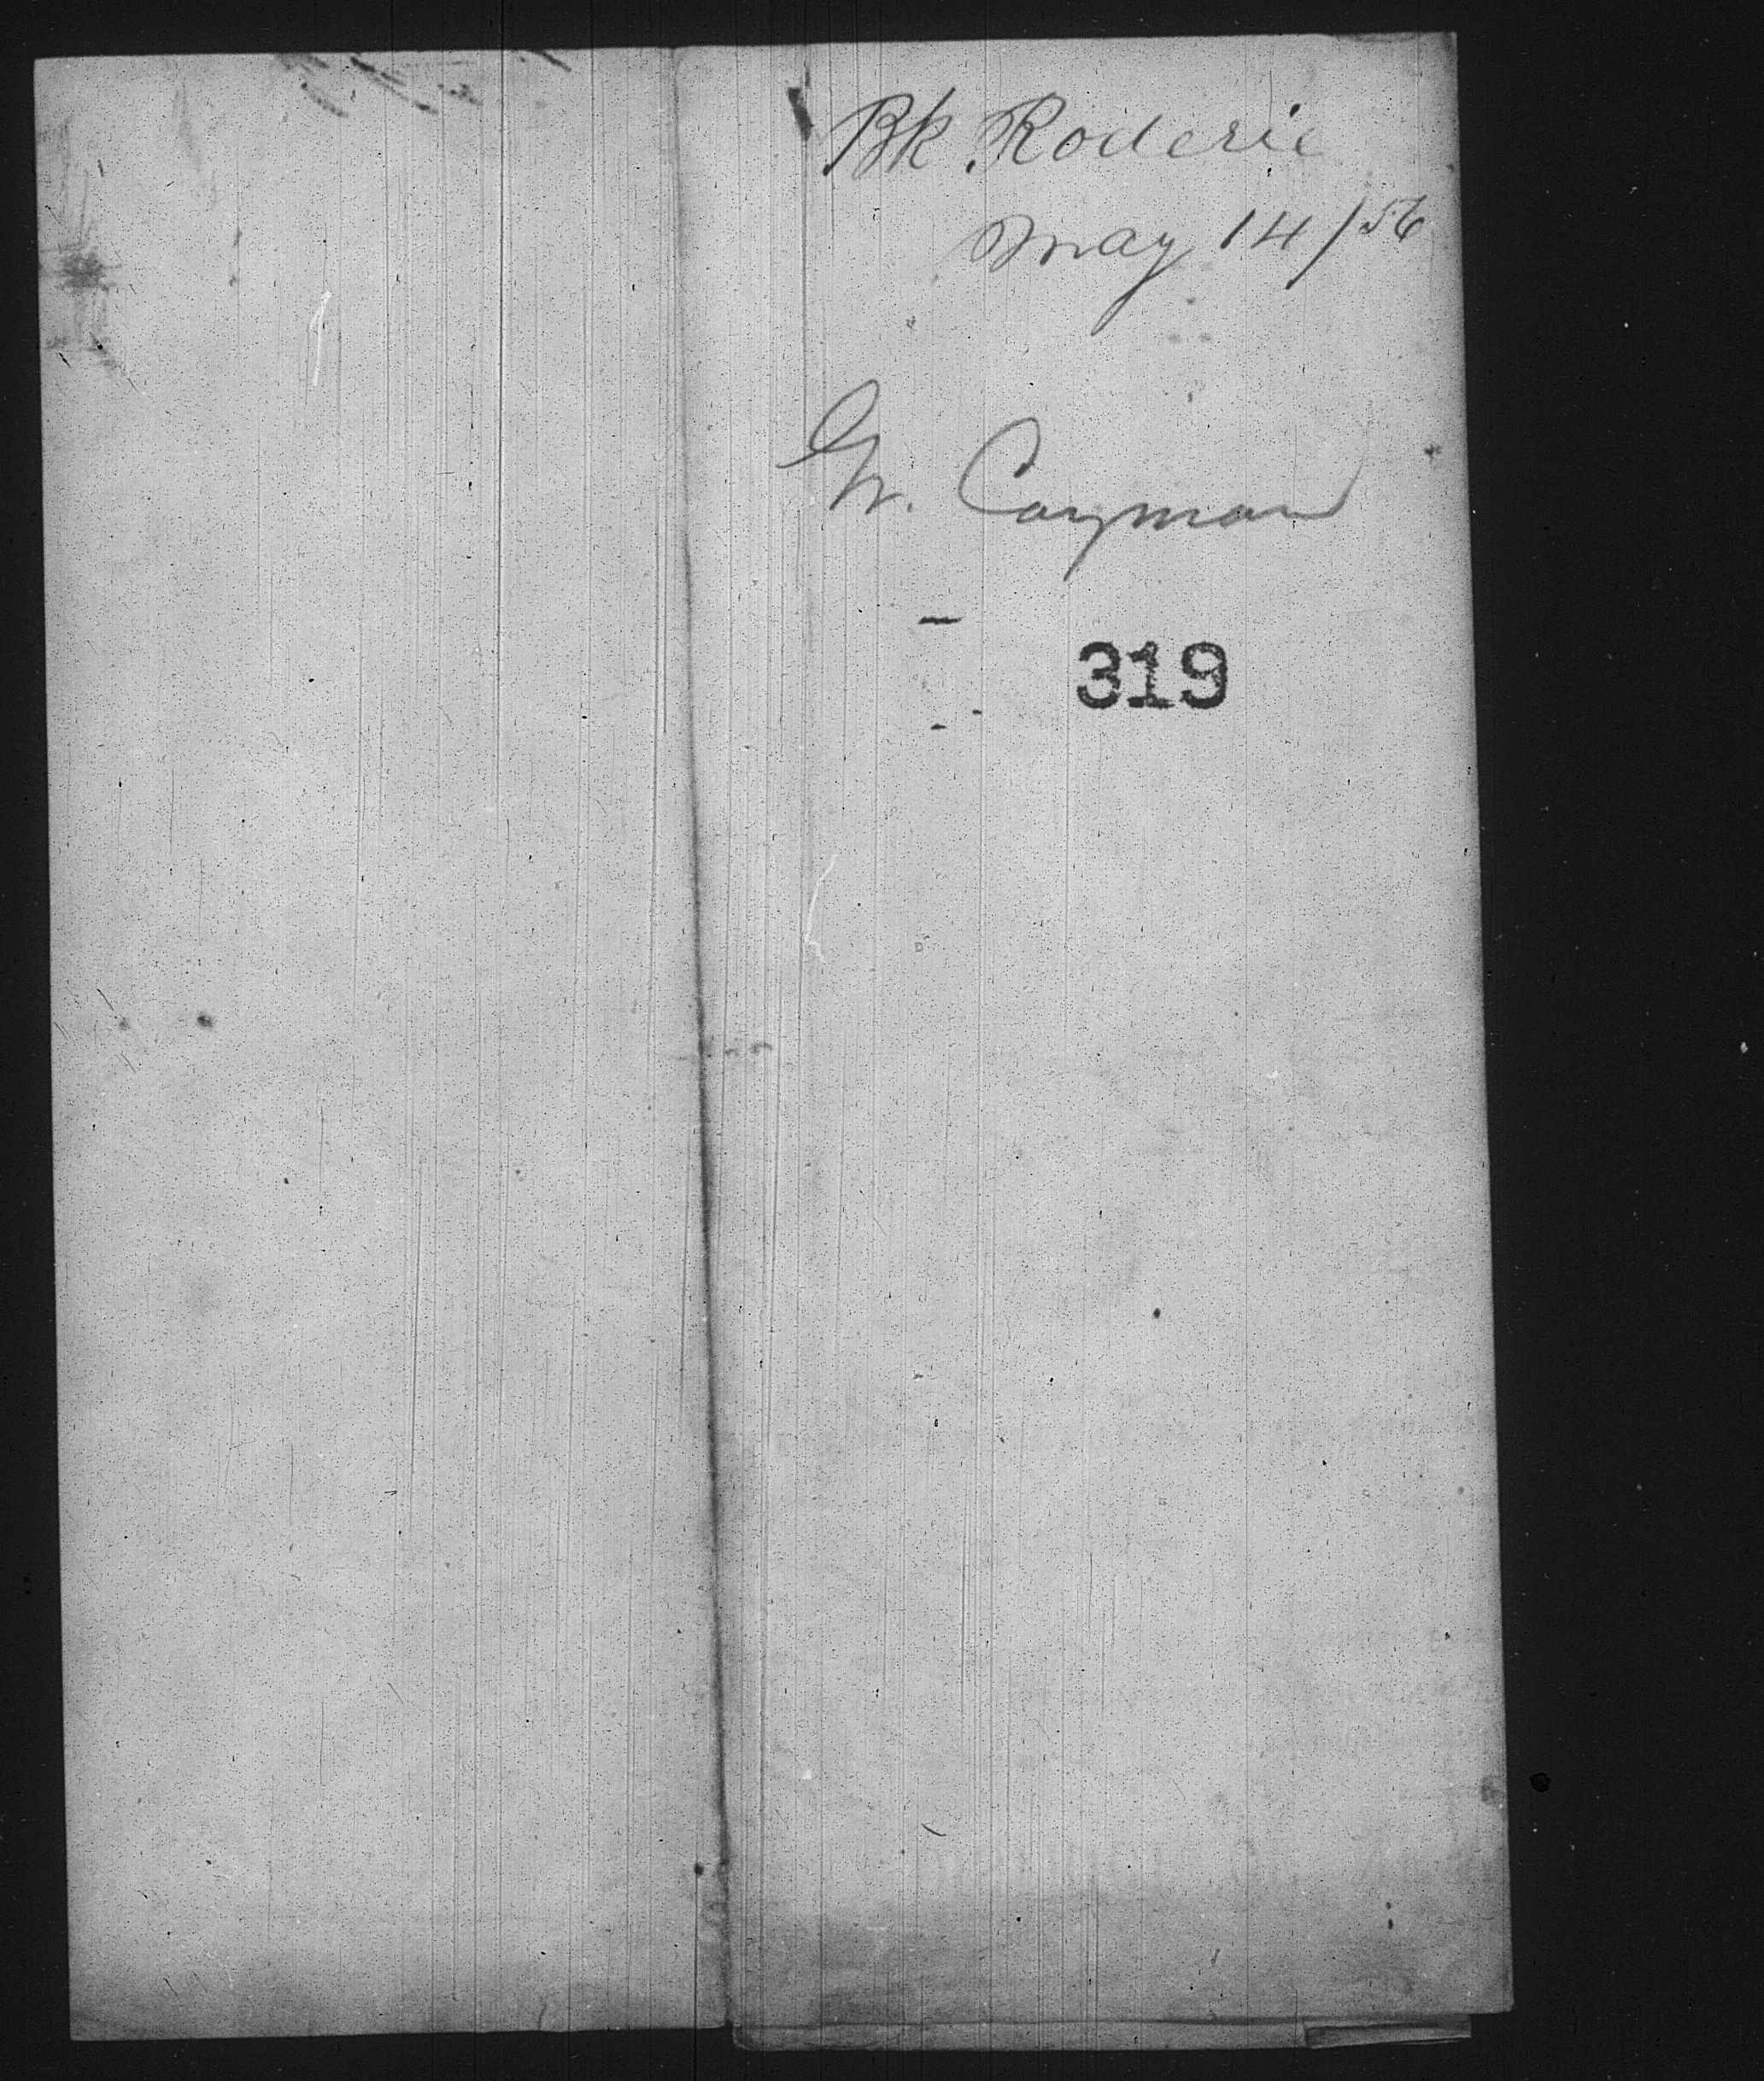 Bk Roderic
May 14/56
Gr. Cayman
319